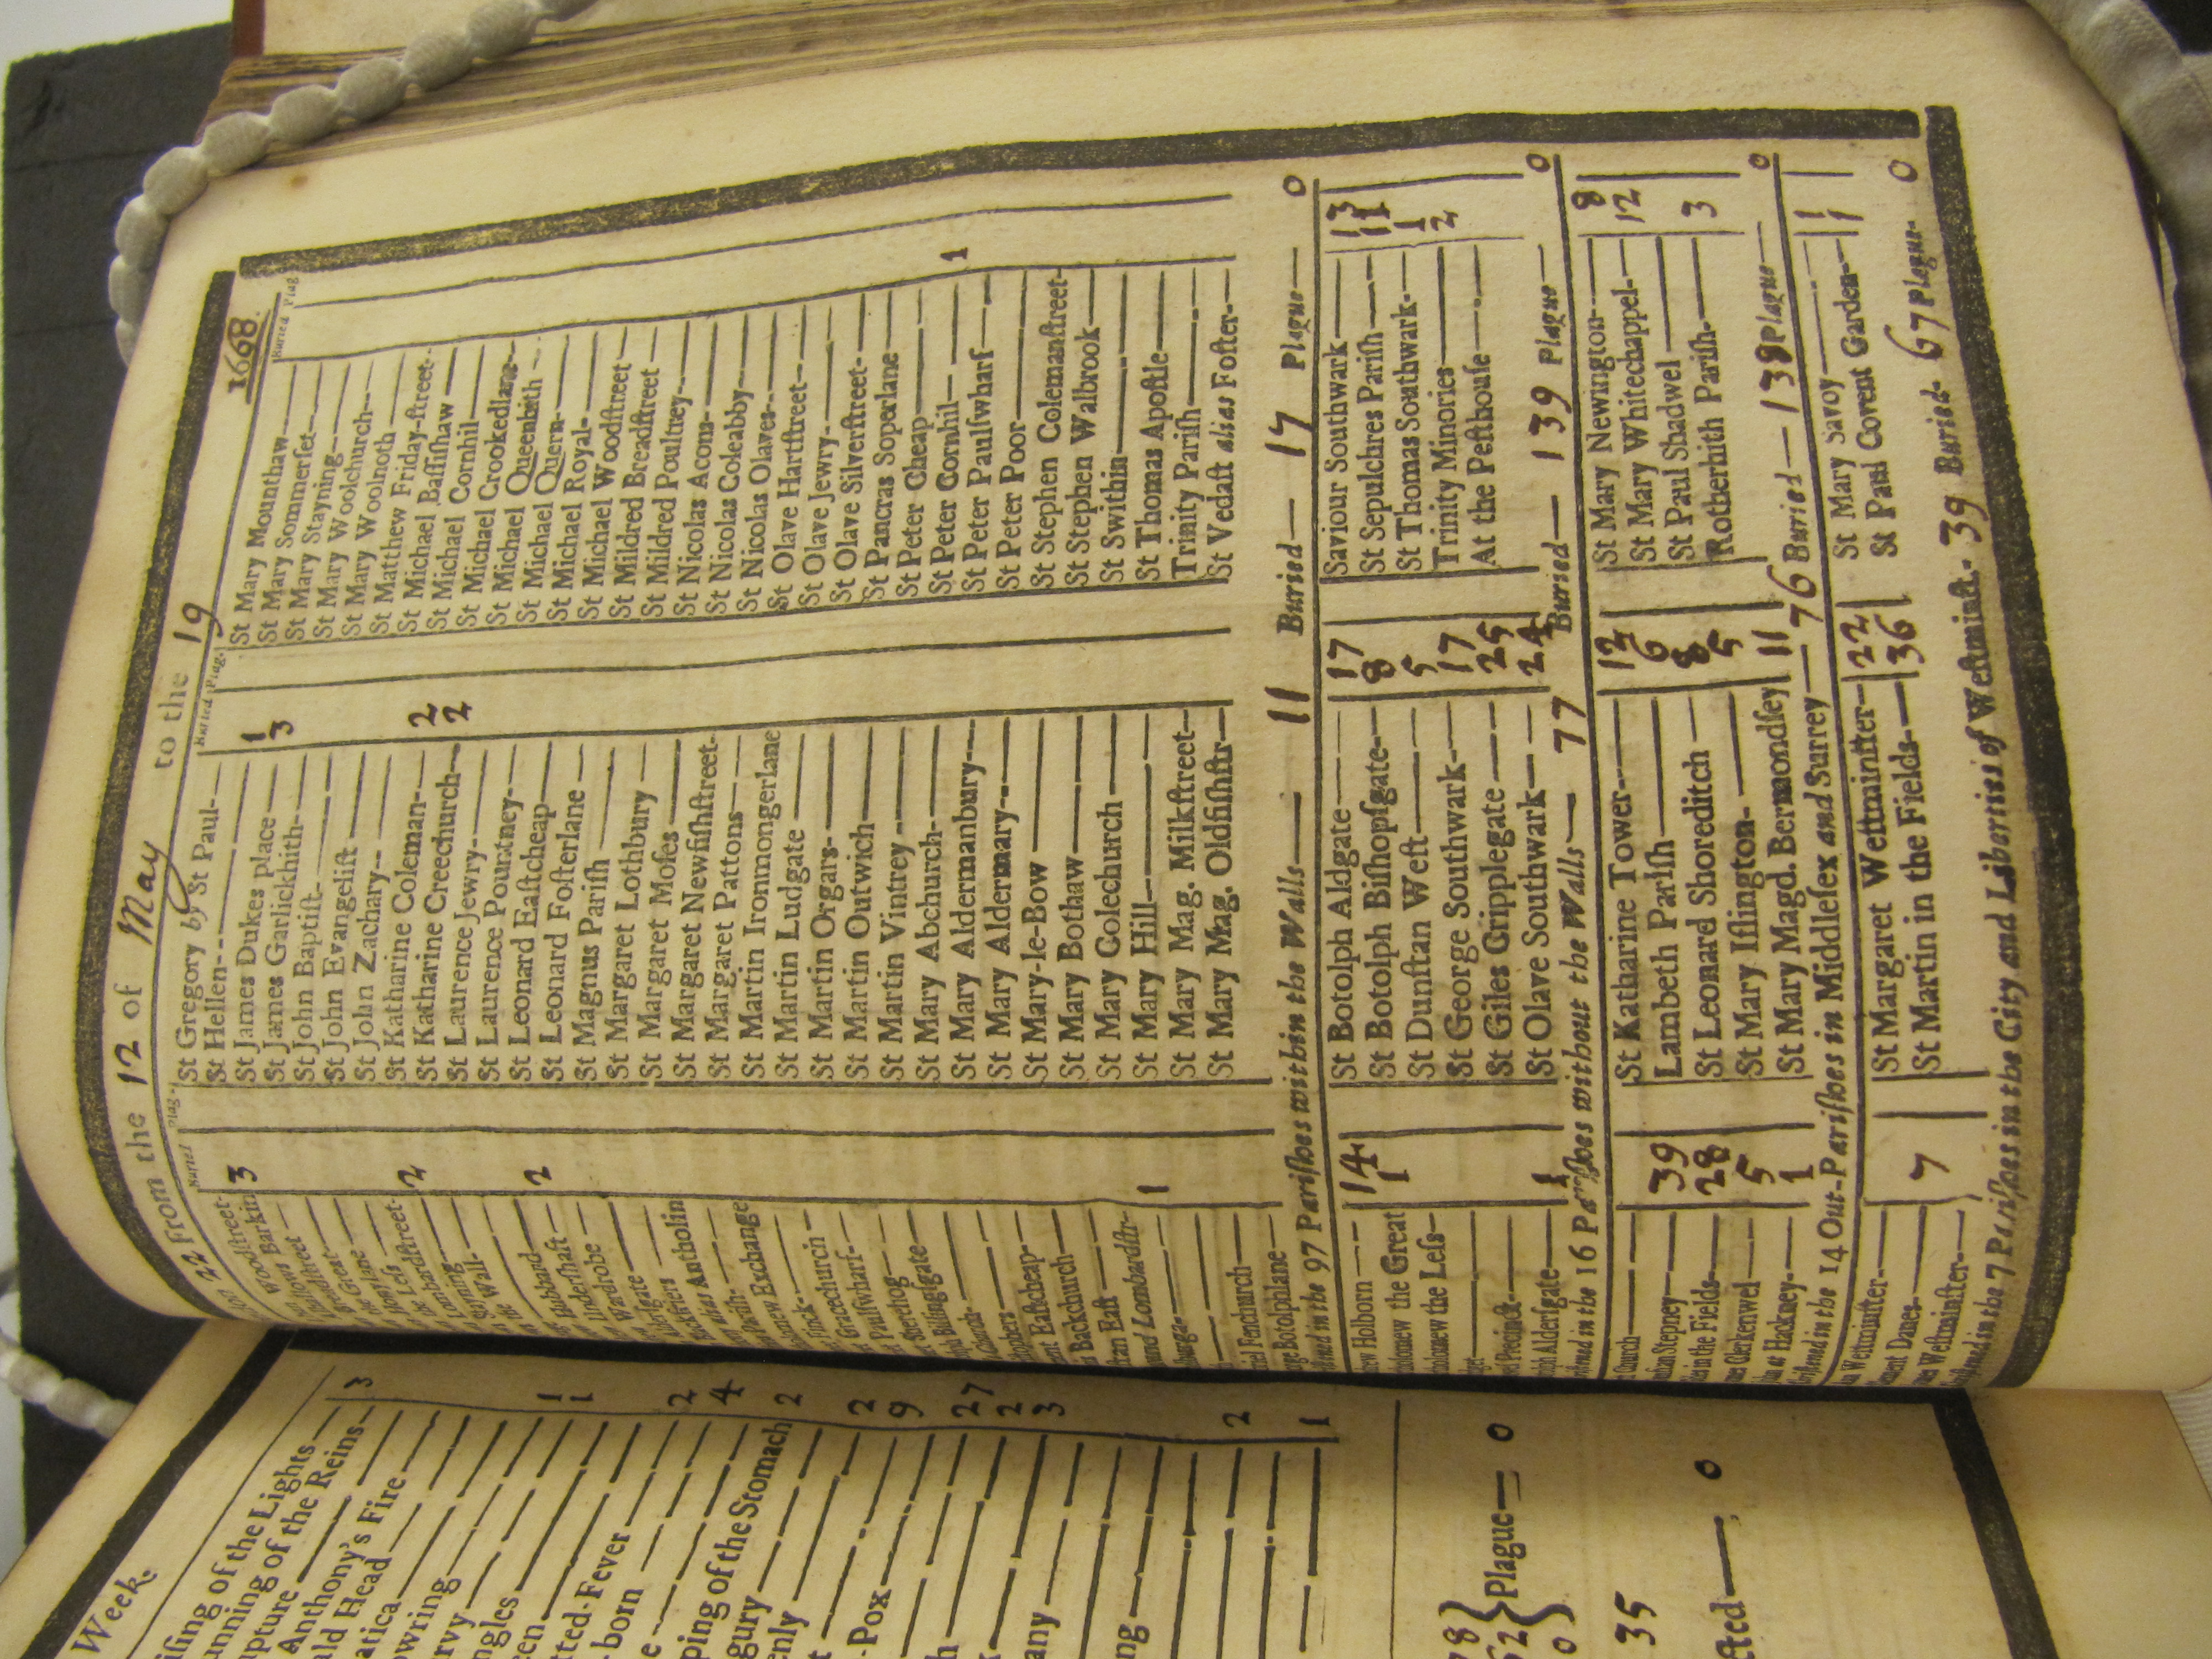 22 From the 12 of May to the 19 1668
Buried Plag.
Woodstreet-
Barkin 3
Breadstreet
Great
Honylane
Less
Lombardstreet- 2
Loming
Wall-
Hubbard 2
Undershaft
Wardrobe
Antholin
Exchange
Finck-
Gracechurch
Paulswharf-
Sherehog
Billingsgate
Eastcheap-
Backchurch
East
Lombardstr-
1
Fenchurch
Botolphlane
Buried Plag.
St Gregory by St Paul-
St Hellen-
St James Dukes place 1
St James Garlickhith- 3
St John Baptist-
St John Evangelist
St John Zachary-
St Katharine Coleman- 2
St Katharine Creechurch- 2
St Laurence Jewry-
St Laurence Pountney-
St Leonard Eastcheap
St Leonard Fosterlane
St Magnus Parish
St Margaret Lothbury
St Margaret Moses
St Margaret Newfishstreet-
St Margaret Pattons
St Martin Ironmongerlane
St Martin Ludgate
St Martin Orgars-
St Martin Outwich
St Martin Vintrey
St Mary Abchurch
St Mary Aldermanbury
St Mary Aldermary
St Mary-le-Bow
St Mary Bothaw
St Mary Colechurch
St Mary Hill
St Mary Mag. Milkstreet-
St Mary Mag. Oldfishstr
Buried Plag
St Mary Mounthaw
St Mary Sommerset
St Mary Stayning
St Mary Woolchurch
St Mary Woolnoth
St Matthew Friday-street-
St Michael Bassishaw
St Michael Cornhil
St Michael Crookedlane
St Michael Queenhith
St Michael Quern
St Michael Royal
St Michael Woodstreet
St Mildred Breadstreet
St Mildred Poultrey
St Nicolas Acorn
St Nicolas Coleabby
St Nicolas Olaves
St Olave Hartstreet
St Olave Jewry
St Olave Silverstreet-
St Pancras Soperlane
St Peter Cheap
St Peter Cornhil 1
St Peter Paulswharf
St Peter Poor
St Stephen Colemanstreet
St Stephen Walbrook
St Swithin
St Thomas Apostle
Trinity Parish
St Vedast alias Foster
in the 97 Parishes within the Walls 11 Buried 17 Plague 0
Holborn 14
the Great 1
the Less-
Precinct
Aldersgate 1
St Botolph Aldgate 17
St Botolph Bishopsgate 8
St Dunstan West 5
St George Southwark 17
St Giles Cripplegate 25
St Olave Southwark 24
Saviour Southwark 13
St Sepulchres Parish 11
St Thomas Southwark 1
Trinity Minories 2
At the Pesthouse
in the 16 Parishes without the Walls 77 Buried 139 Plague 0
Church
Stepney 39
in the Fields 28
Clerkenwel 5
at Hackney 1
St Katharine Tower 12
Lambeth Parish 6
St Leonard Shoreditch 8
St Mary Islington 5
St Mary Magd. Bermondsey 11
St Mary Newington 8
St Mary Whitechappel 12
St Paul Shadwel
Rotherhith Parish 3
in the 14 Out-Parishes in Middlesex and Surrey 76 Buried 138 Plague 0
Westminster
Danes 7
Westminster
St Margaret Westminster 22
St Martin in the Fields 36
St Mary Savoy 1
St Paul Covent Garden 1
in the 7 Parishes in the City and Liberties of Westminst. 39 Buried 67 Plague 0
Week.
of the Lights 3
of the Reins
Anthony's Fire
Head
1
1
Fever
born 2
4
of the Stomach 2
2
Pox 9
27
2
3
2
1
Plague 0
35
0